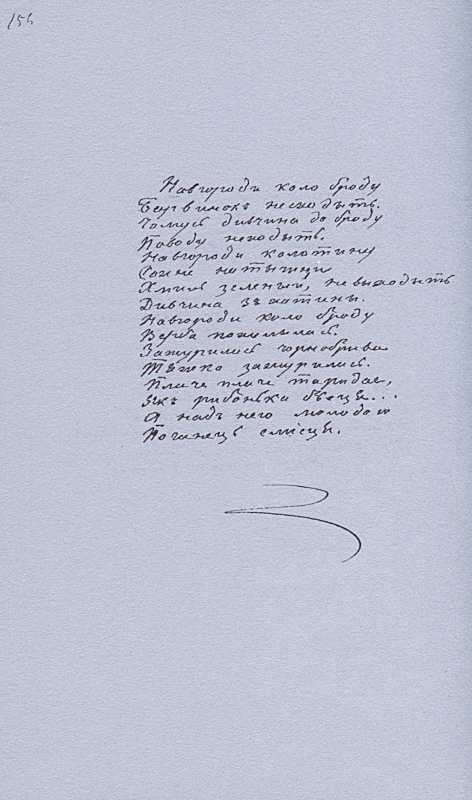 156
Навгороди коло броду
Барвинокъ несходыть.
Чомусь дивчина до броду
Поводу неходыть.
Навгороди коло тину
Сохне на тычини
Хмиль зелений, невыходыть
Дивчина зъ хатыны.
Навгороди коло броду
Верба похилылась.
Зажурилась чорнобрива
Тяжко зажурилась.
Плаче плаче та рыдае,
Якъ рибонька бьеця...
А надъ нею молодою
Поганець сміеця.